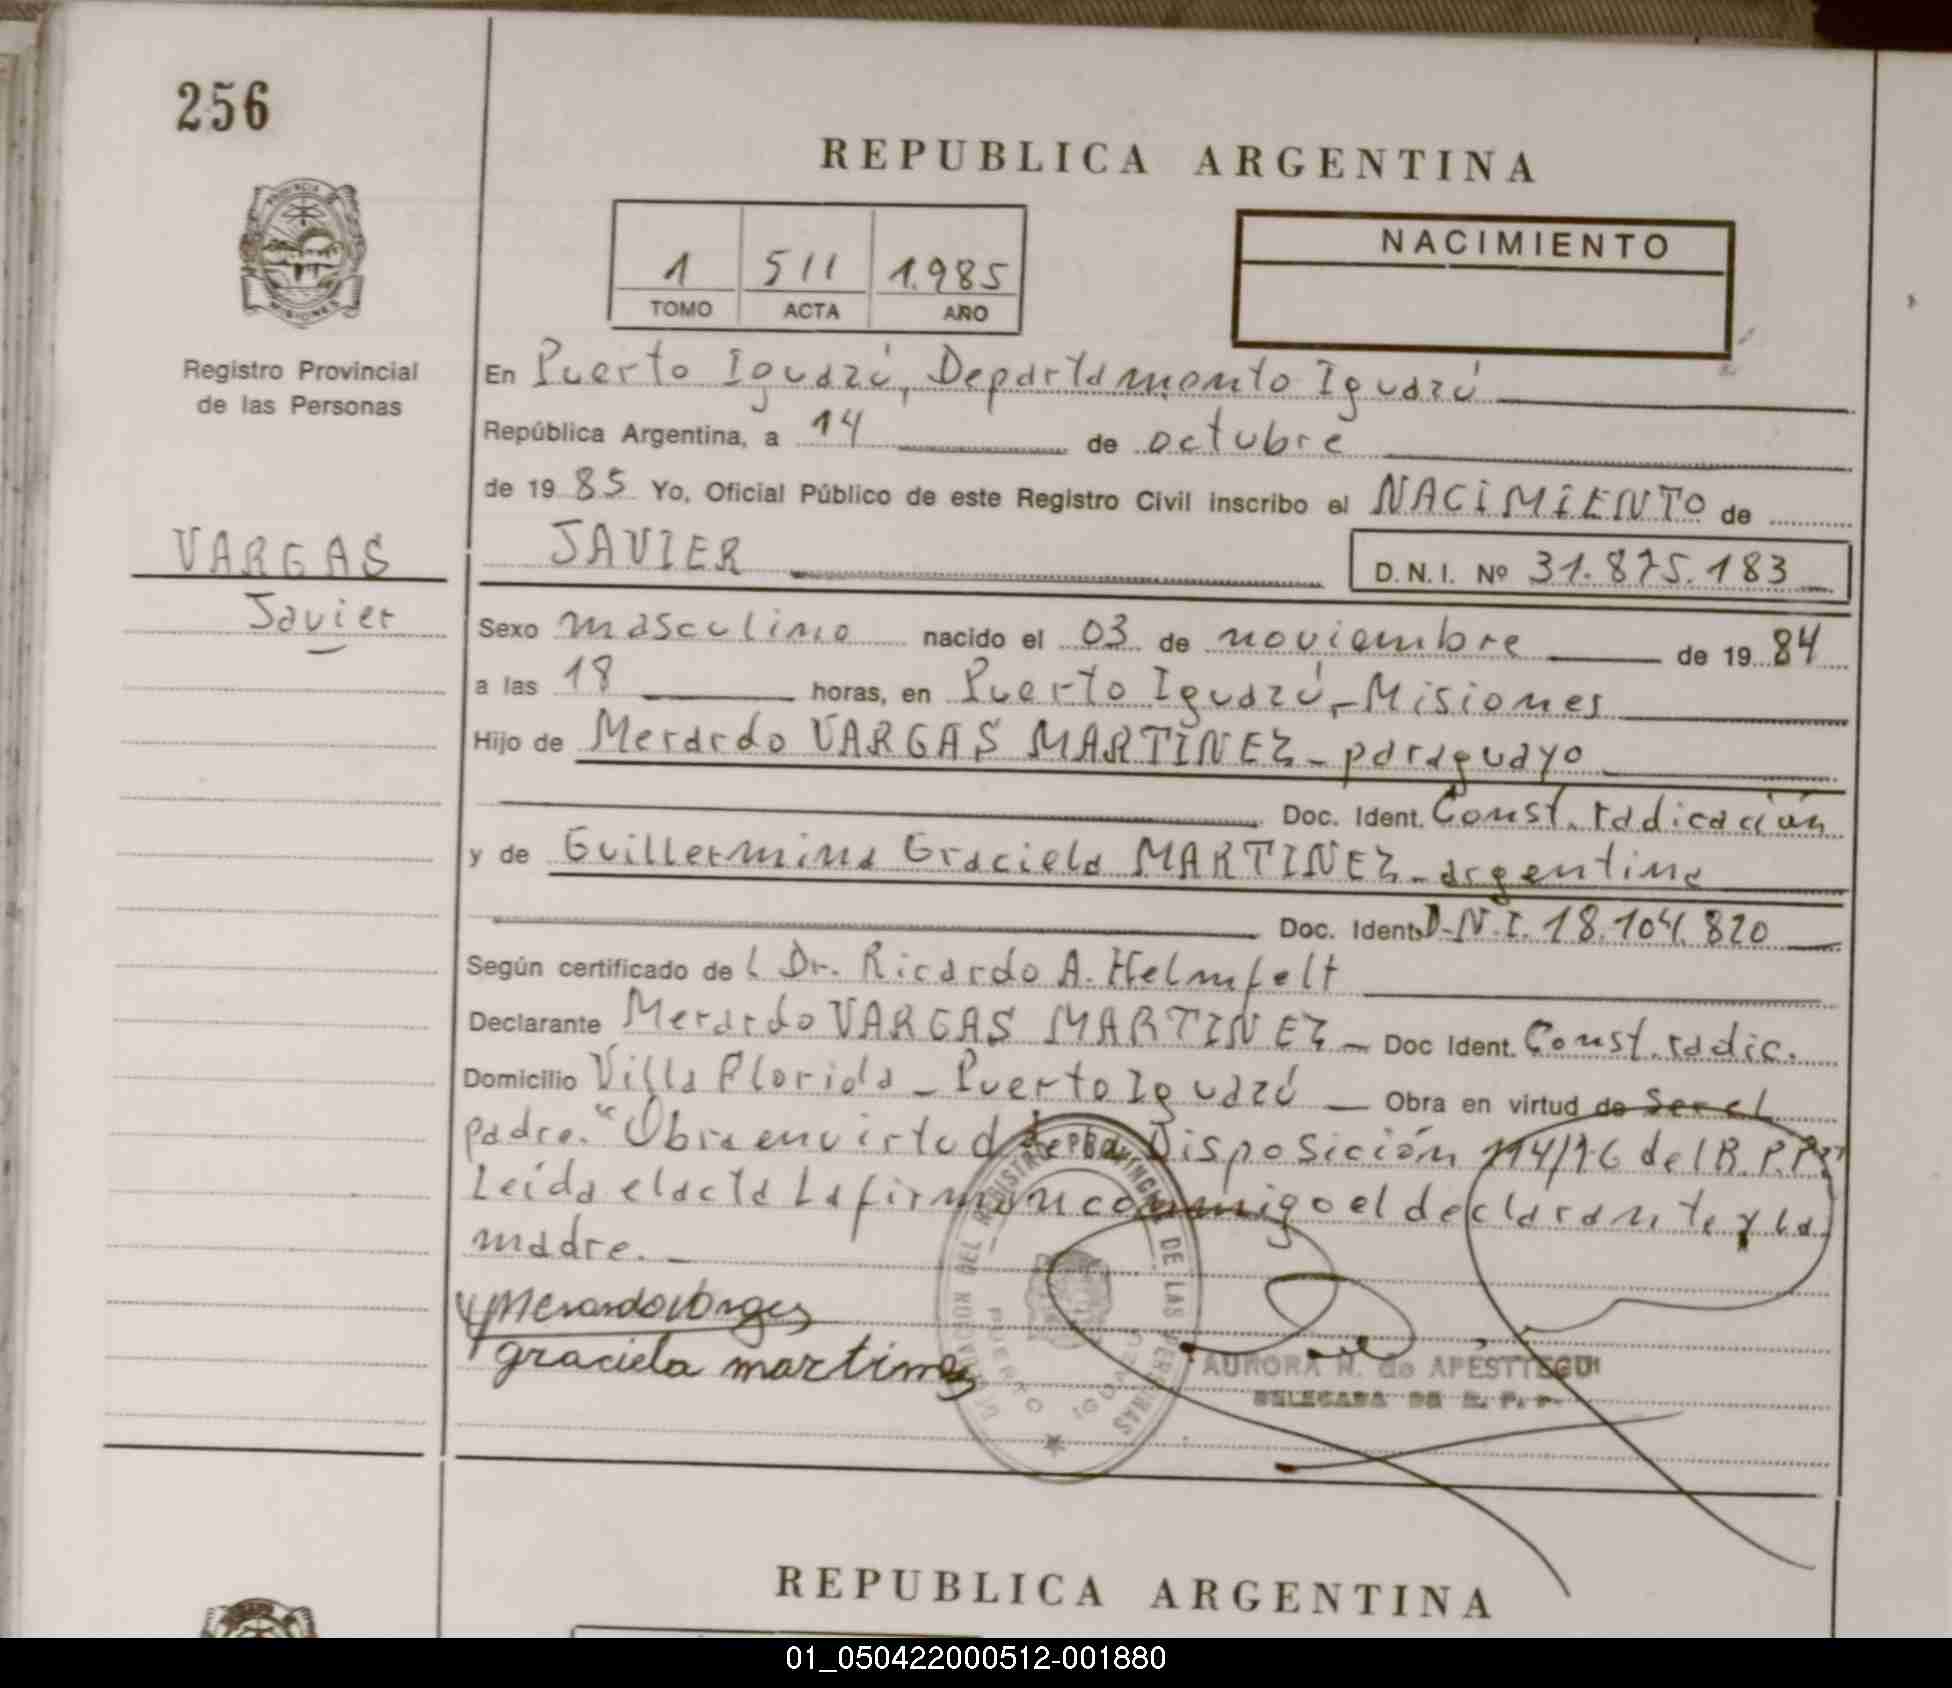 256
REPUBLICA ARGENTINA
PROVINCIA DE MISIONES
NACIMIENTO
1 511 1.985
TOMO ACTA AÑO
Registro Provincial
de las Personas
En Puerto Iguazú, Departamento Iguazú
República Argentina, a 14 de octubre
de 19 85 Yo, Oficial Público de este Registro Civil inscribo el NACIMIENTO de
VARGAS
Javier
JAVIER D.N.I. Nº 31.875.183
Sexo masculino nacido el 03 de noviembre de 19 84
a las 18 horas, en Puerto Iguazú, Misiones
Hijo de Merardo VARGAS MARTINEZ - paraguayo
Doc. Ident. Const. radicación
y de Guillermina Graciela MARTINEZ - argentina
Doc. Ident. D.N.I. 18.104.820
Según certificado de l Dr. Ricardo A. Helmfelt
Declarante Merardo VARGAS MARTINEZ - Doc Ident. Const. radic.
Domicilio Villa Florida - Puerto Iguazú - Obra en virtud de ser el
padre. "Obra en virtud de la Disposición 114/76 del R.P.P."
Leída el acta la firman conmigo el declarante y la
madre.
Merardo Vargas
graciela martinez
DELEGACION DEL REGISTRO PROVINCIAL DE LAS PERSONAS
PUERTO IGUAZU
AURORA N. de APESTTEGUI
DELEGADA DE R. P. P.
REPUBLICA ARGENTINA
01_050422000512-001880